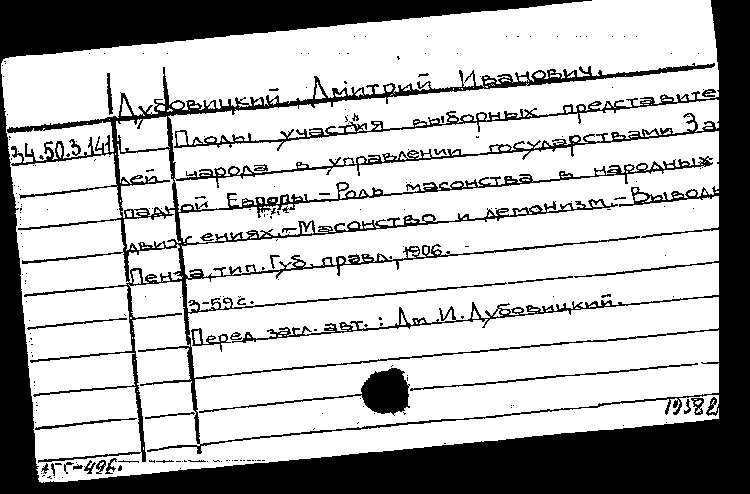 Лубовицкий, Дмитрий Иванович.
34.50.3.141. Плоды участия выборных представите
лей народа в управлении государствами За
падной Европы.-Роль масонства в народных
движениях.-Масонство и демонизм.-Выводы
Пенза, тип. Губ. правл., 1906.
3-59 с.
Перед загл. авт.: Дм. И. Лубовицкий.